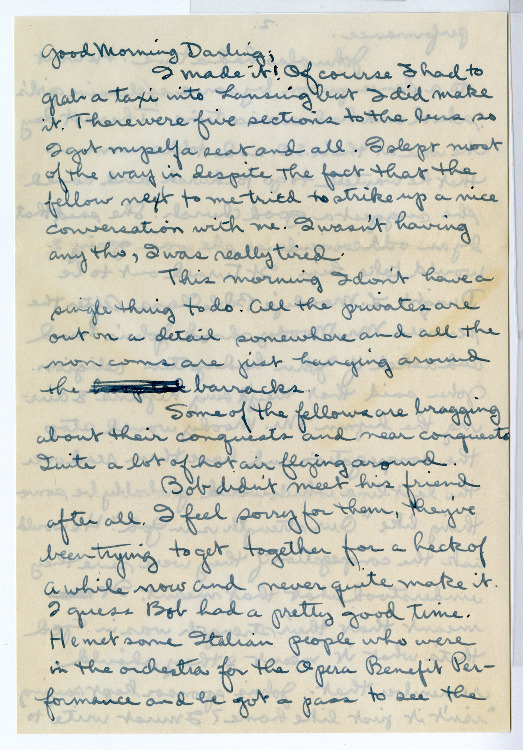 Good Morning Darling;
I made it! Of course I had to
grab a taxi into Lansing but I did make
it. There were five sections to the bus so
I got myself a seat and all. I slept most
of the way in despite the fact that the
fellow next to me tried to strike up a nice
conversation with me. I wasn't having
any tho, I was really tired.
This morning I don't have a
single thing to do. All the privates are
out on a detail somewhere and all the
non coms are just hanging around
the barracks.
Some of the fellows are bragging
about their conquests and near conquests
Quite a lot of hot air flying around.
Bob didn't meet his friend
after all. I feel sorry for them, they've
been trying to get together for a heck of
a while now and never quite make it.
I guess Bob had a pretty good time.
He met some Italian people who were
in the orchestra for the Opera Benefit Per-
formance and he got a pass to see the